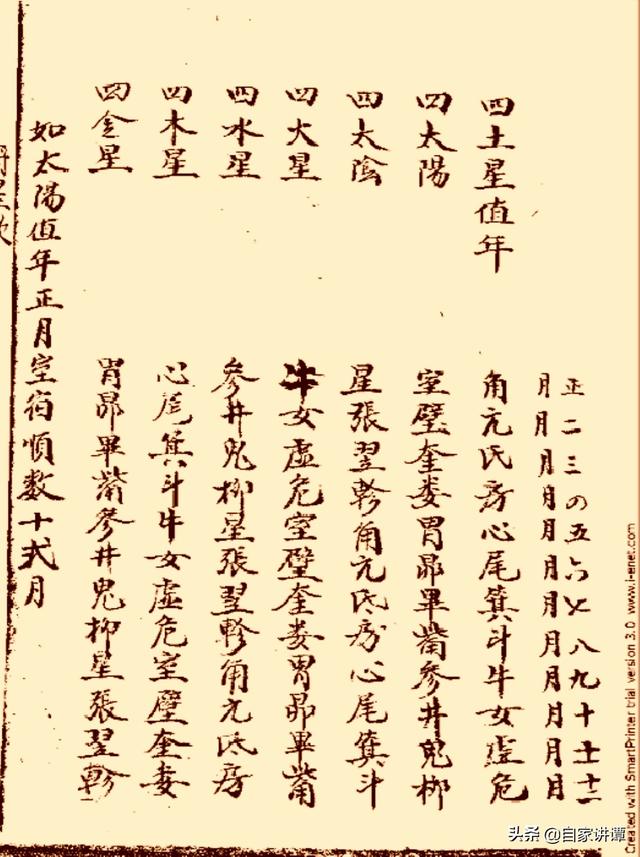 正二三の五六七八九十十一十二
月月月月月月月月月月月月
四土星值年 角亢氐房心尾箕斗牛女虛危
四太陽 室壁奎娄胃昴畢觜參井鬼柳
四太陰 星張翌軫角亢氐房心尾箕斗
四火星 牛女虛危室壁奎娄胃昴畢觜
四水星 參井鬼柳星張翌軫角亢氐房
四木星 心尾箕斗牛女虛危室壁奎娄
四金星 胃昴畢觜參井鬼柳星張翌軫
如太陽值年正月室宿順數十弍月
Created with SmartPrinter trial version 3.0 www.i-enet.com
头条 @自家讲谭